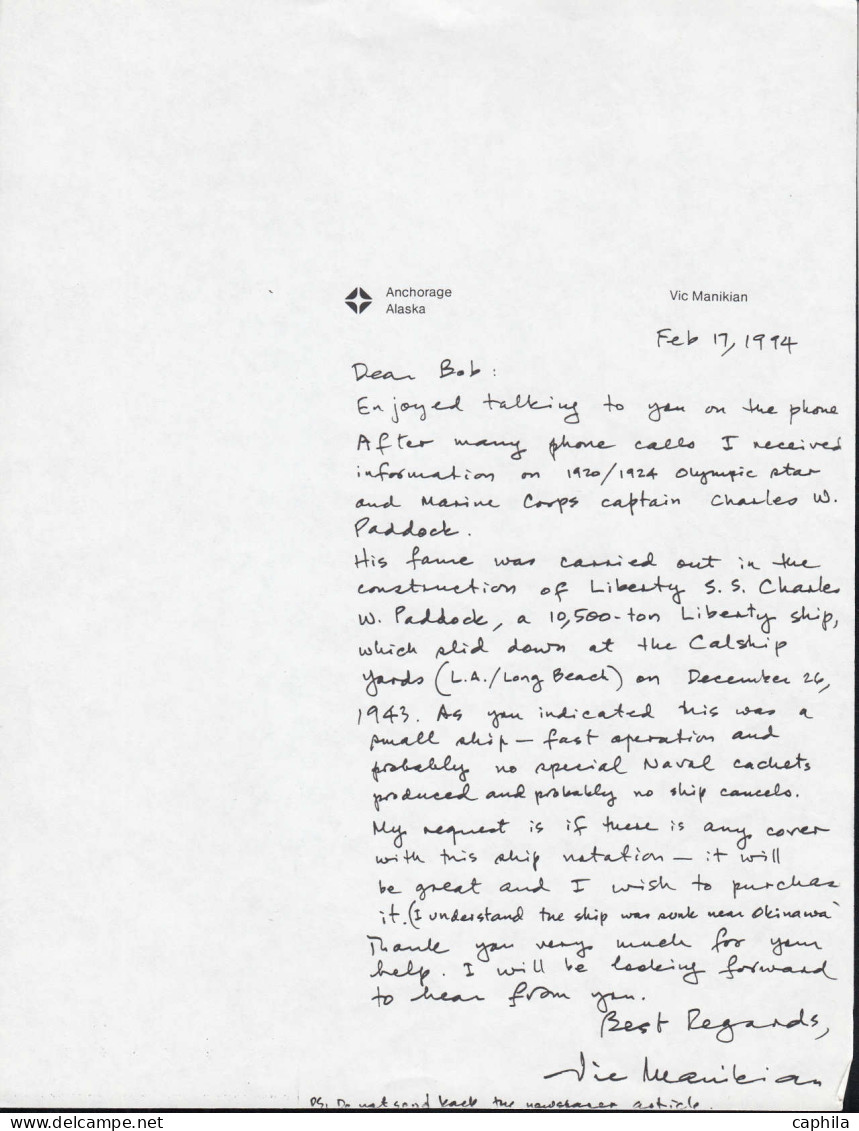 Anchorage
Alaska
Vic Manikian
Feb 17, 1994
Dear Bob:
Enjoyed talking to you on the phone
After many phone calls I received
information on 1920/1924 Olympic star
and Marine Corps captain Charles W.
Paddock.
His fame was carried out in the
construction of Liberty S.S. Charles
W. Paddock, a 10,500-ton Liberty ship,
which slid down at the Calship
Yards (L.A./Long Beach) on December 26,
1943. As you indicated this was a
small ship — fast operation and
probably no special Naval cachets
produced and probably no ship cancels.
My request is if there is any cover
with this ship notation — it will
be great and I wish to purchase
it. (I understand the ship was sunk near Okinawa
Thank you very much for your
help. I will be looking forward
to hear from you.
Best Regards,
Vic Manikian
PS. Do not send back the newspaper article.
www.delcampe.net
caphila